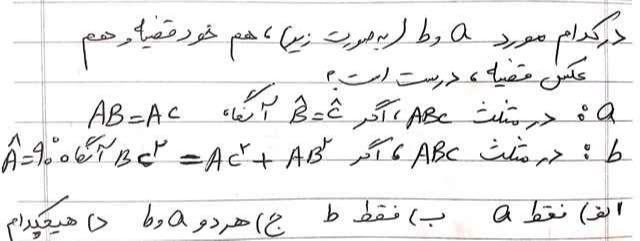 در کدام مورد a و b (به صورت زیر)، هم خود قضیه و هم
عکس قضیه، درست است؟
a: در مثلث ABC، اگر B̂=Ĉ آنگاه AB=AC
b: در مثلث ABC، اگر BC²=AC²+AB² آنگاه Â=90°
الف) فقط a ب) فقط b ج) هر دو a و b د) هیچکدام